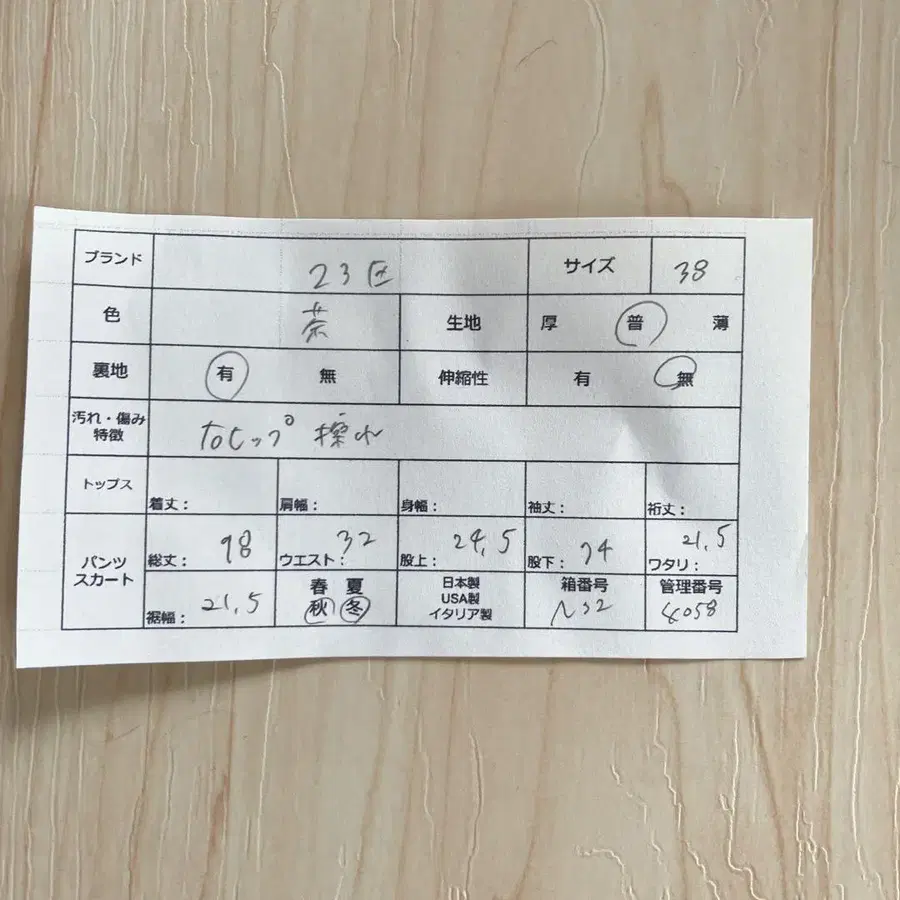 ブランド 23区 サイズ 38
色 茶 生地 厚 普 薄
裏地 有 無 伸縮性 有 無
汚れ・傷み
特徴 右ヒップ 擦れ
トップス 着丈： 肩幅： 身幅： 袖丈： 裄丈：
パンツ
スカート
総丈： 98 ウエスト： 32 股上： 24.5 股下： 74 ワタリ： 21.5
裾幅： 21.5
春 夏
秋 冬
日本製
USA製
イタリア製
箱番号
N32
管理番号
4058